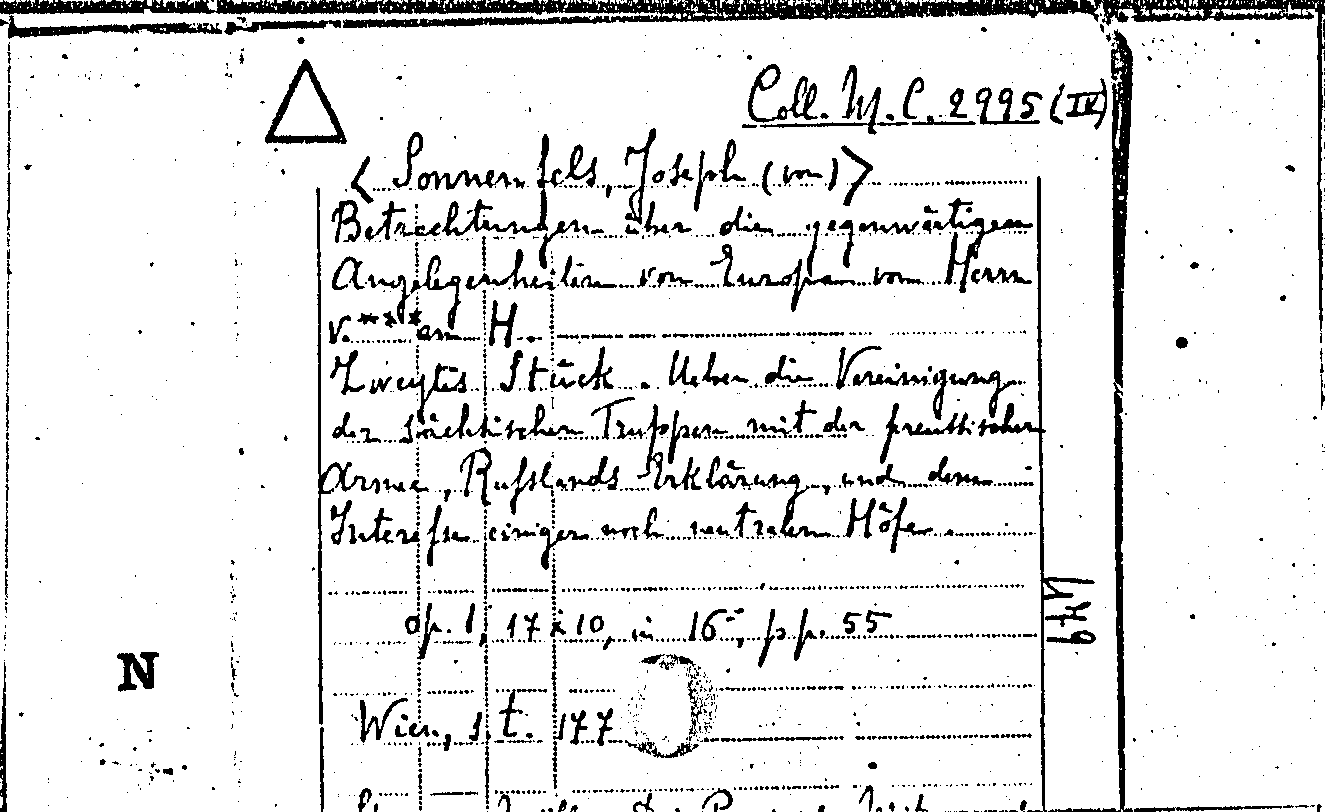 Coll. M. C. 2995 (IV)
< Sonnenfels, Joseph (von) >
Betrachtungen über die gegenwärtigen
Angelegenheiten von Europa von Herrn
v.*** an H.
Zweytes Stück. Ueber die Vereinigung
der sächsischen Truppen mit der preussischen
Armee, Russlands Erklärung, und dem
Interesse einiger noch neutralen Höfe.
op. 1, 17 x 10, in 16°, pp. 55
N
Wien, s.t. 177